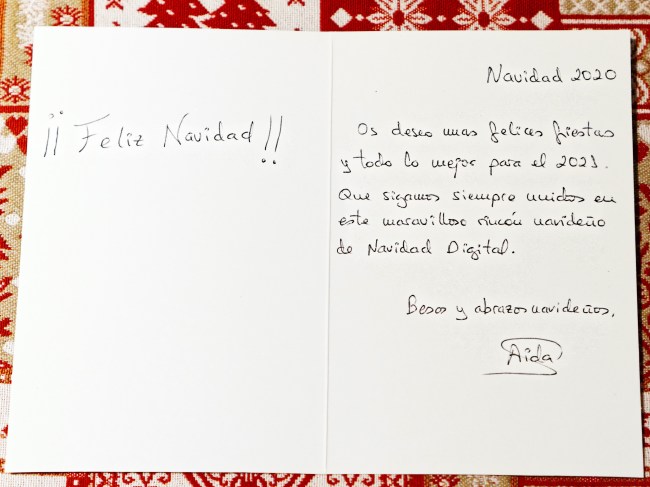 ¡¡Feliz Navidad!!
Navidad 2020
Os deseo unas felices fiestas
y todo lo mejor para el 2021.
Que sigamos siempre unidos en
este maravilloso rincón navideño
de Navidad Digital.
Besos y abrazos navideños,
Aida